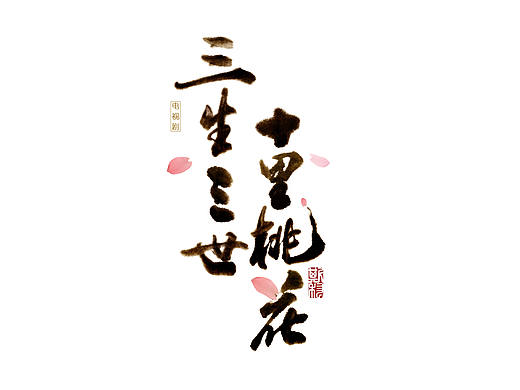 三生三世
十里桃花
电视剧